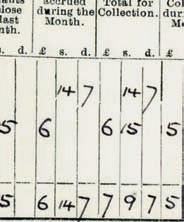 accrued Total for
close during the Collection. dur
last Month. M
nth.
s. d. £ s. d. £ s. d. £
14 7 14 7
5 6 6 15 5
5 6 14 7 7 9 7 5